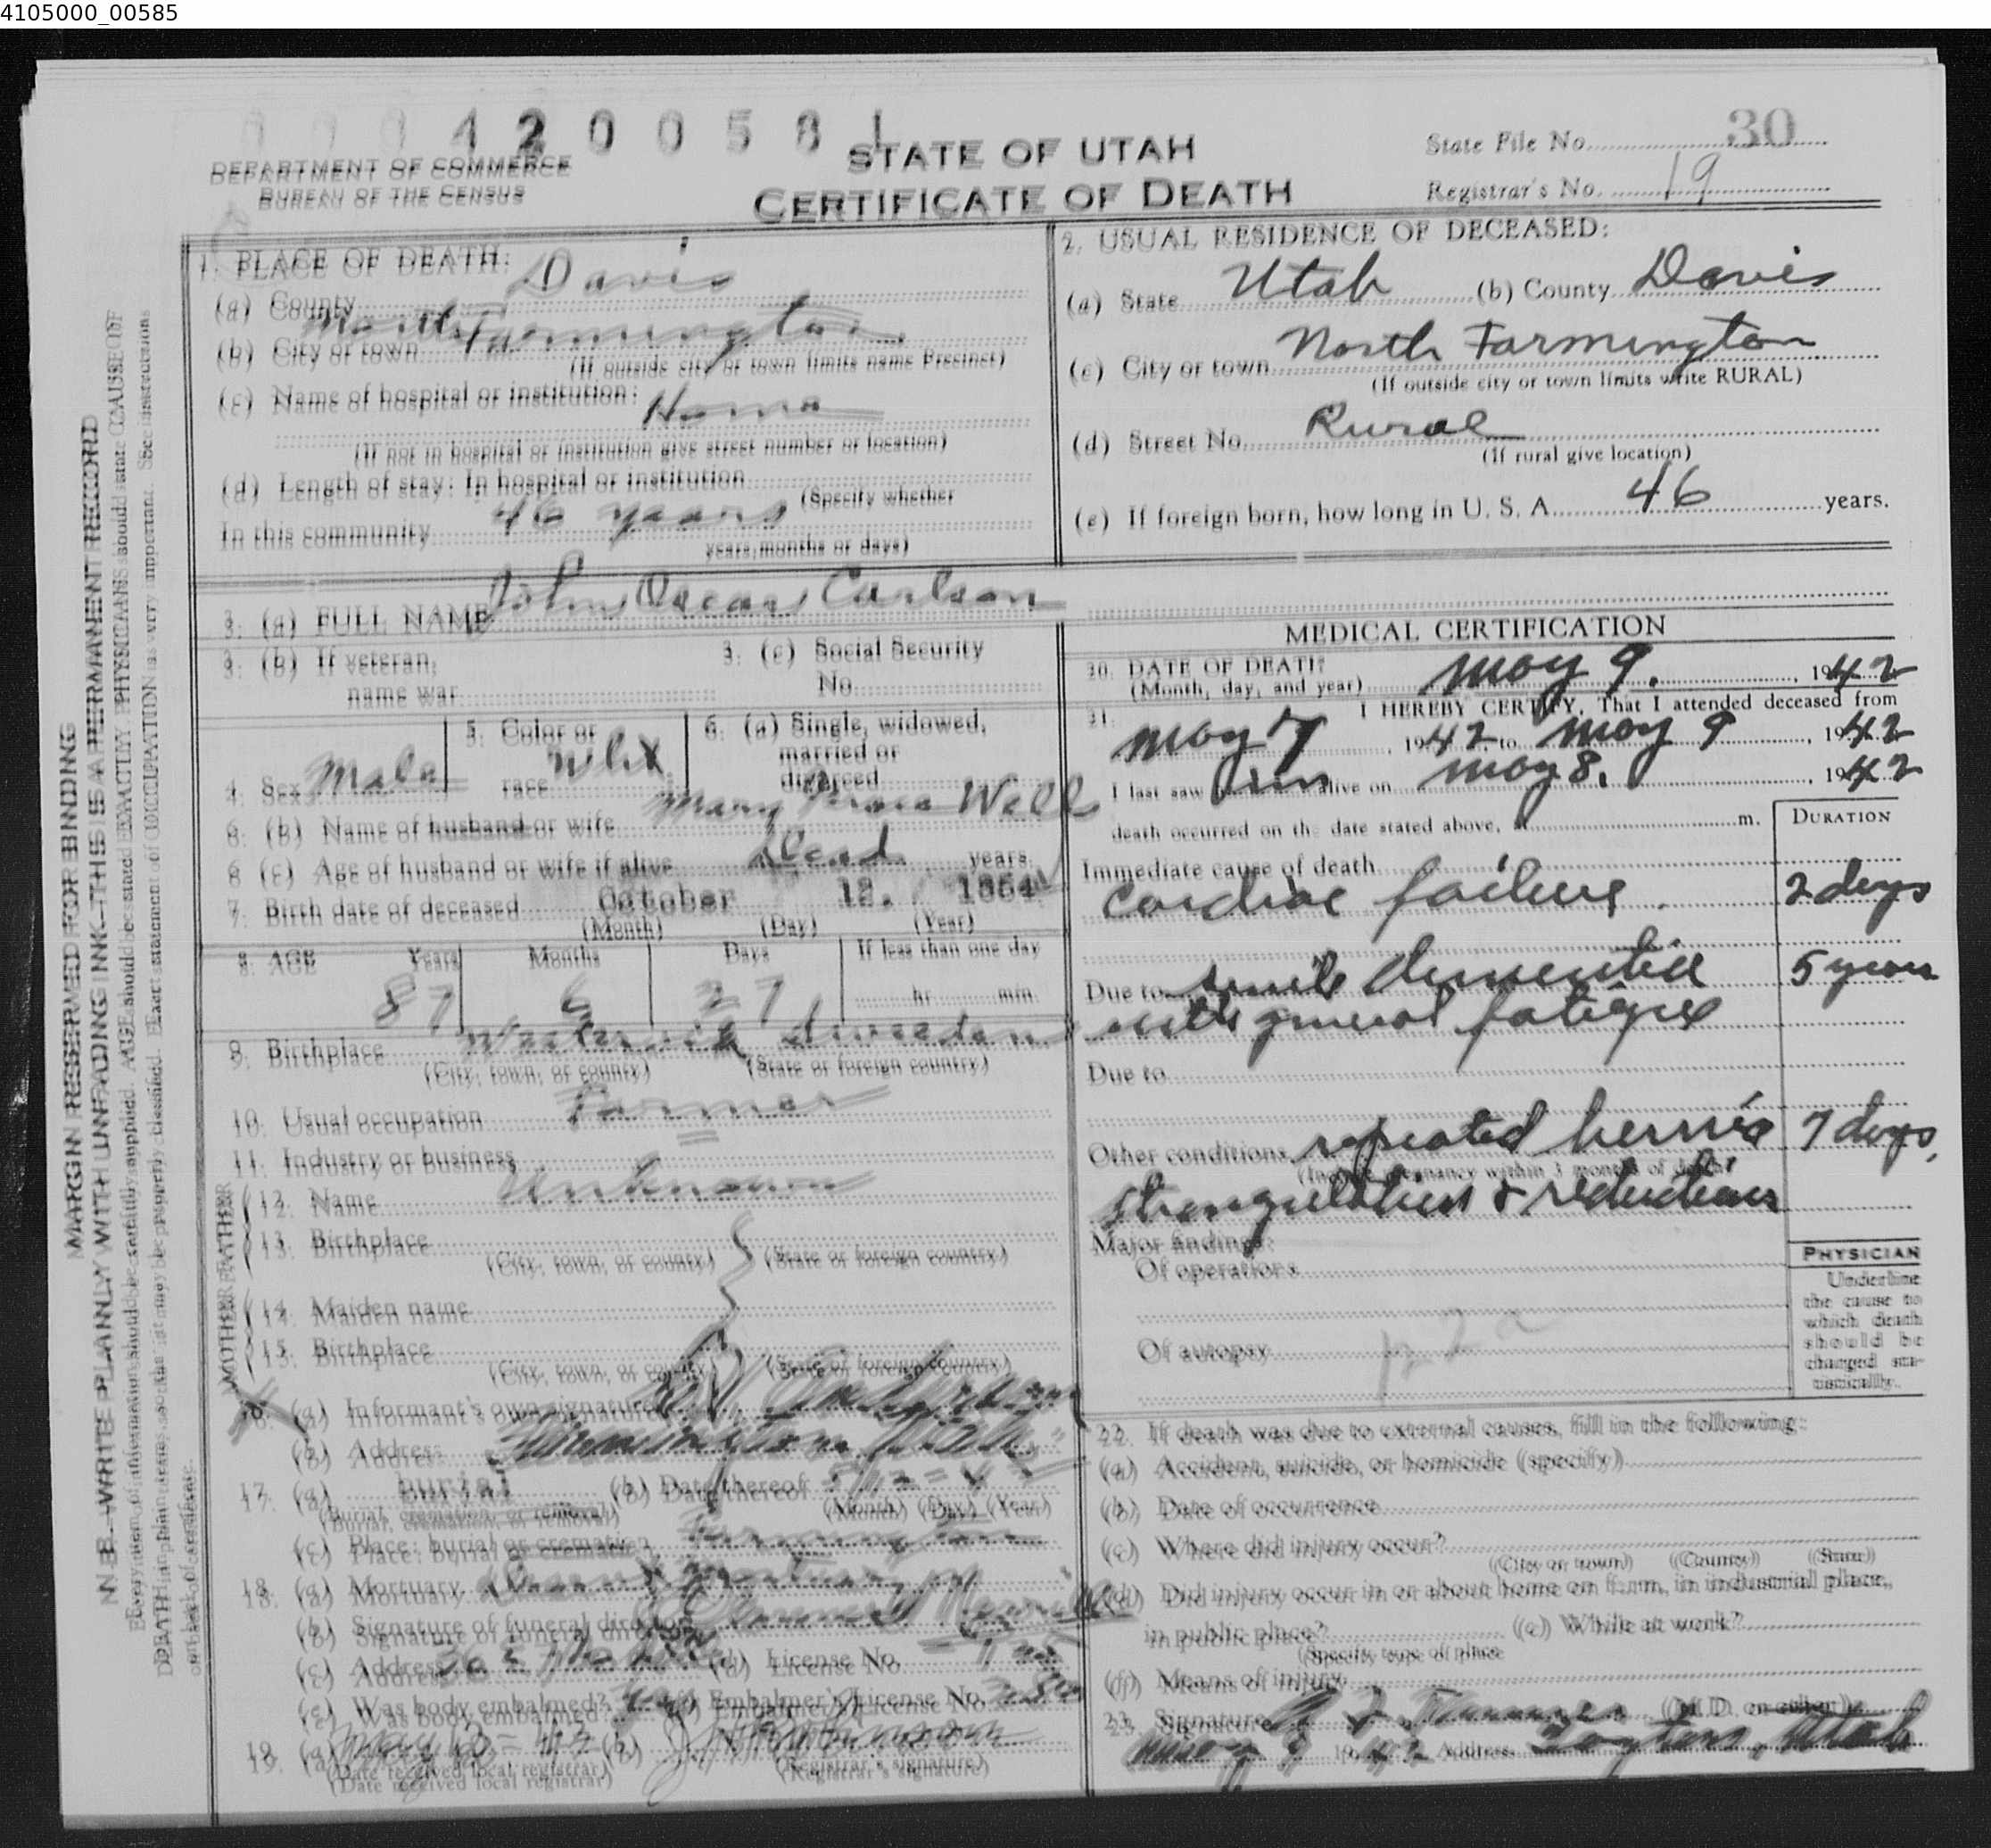 4105000_00585
420058
STATE OF UTAH
CERTIFICATE OF DEATH
DEPARTMENT OF COMMERCE
BUREAU OF THE CENSUS
State File No. 30
Registrar's No. 19
MARGIN RESERVED FOR BINDING
N. B.—WRITE PLAINLY WITH UNFADING INK—THIS IS A PERMANENT RECORD
1. PLACE OF DEATH:
(a) County Davis
(b) City or town North Farmington
(If outside city or town limits name Precinct)
(c) Name of hospital or institution: Home
(If not in hospital or institution give street number or location)
(d) Length of stay: In hospital or institution
(Specify whether
In this community 46 years
years, months or days)
2. USUAL RESIDENCE OF DECEASED:
(a) State Utah (b) County Davis
(c) City or town North Farmington
(If outside city or town limits write RURAL)
(d) Street No. Rural
(If rural give location)
(e) If foreign born, how long in U. S. A. 46 years.
3. (a) FULL NAME John Oscar Carlson
3. (b) If veteran,
name war
3. (c) Social Security
No.
4. Sex Male
5. Color or
race Whi
6. (a) Single, widowed,
married or
divorced
6. (b) Name of husband or wife Mary Well
6 (c) Age of husband or wife if alive Dead years
7. Birth date of deceased October 12. 1854
(Month) (Day) (Year)
8. AGE Years Months Days If less than one day
87 6 27 hr. min.
9. Birthplace Westervik Sweeden
(City, town, or county) (State or foreign country)
10. Usual occupation Farmer
11. Industry or business
FATHER
12. Name Unknown
13. Birthplace
(City, town, or county) (State or foreign country)
MOTHER
14. Maiden name
15. Birthplace
(City, town, or county) (State or foreign country)
16. (a) Informant's own signature
(b) Address Farmington Utah
17. (a) burial (b) Date thereof 5/12-42
(Burial, cremation, or removal) (Month) (Day) (Year)
(c) Place: burial or cremation Farmington
18. (a) Mortuary
(b) Signature of funeral director
(c) Address (d) License No.
(e) Was body embalmed? yes (f) Embalmer's License No.
19. (a) (b)
(Date received local registrar) (Registrar's signature)
MEDICAL CERTIFICATION
20. DATE OF DEATH
(Month, day, and year) May 9. , 1942
21. I HEREBY CERTIFY, That I attended deceased from
May 7 , 1942, to May 9 , 1942
I last saw him alive on May 8. , 1942
death occurred on the date stated above, at m.
DURATION
Immediate cause of death
Cardiac failure. 2 days
Due to senile dementia 5 years
with general fatigue
Due to
Other conditions repeated hernia 7 days,
(Include pregnancy within 3 months of death)
strangulation & reductions
Major findings:
Of operations
Of autopsy
PHYSICIAN
Underline
the cause to
which death
should be
charged sta-
tistically.
22. If death was due to external causes, fill in the following:
(a) Accident, suicide, or homicide (specify)
(b) Date of occurrence
(c) Where did injury occur?
(City or town) (County) (State)
(d) Did injury occur in or about home on farm, in industrial place,
in public place? (e) While at work?
(Specify type of place
(f) Means of injury
23. Signature Tanner (M. D. or other)
May 9 1942 Address Layton, Utah